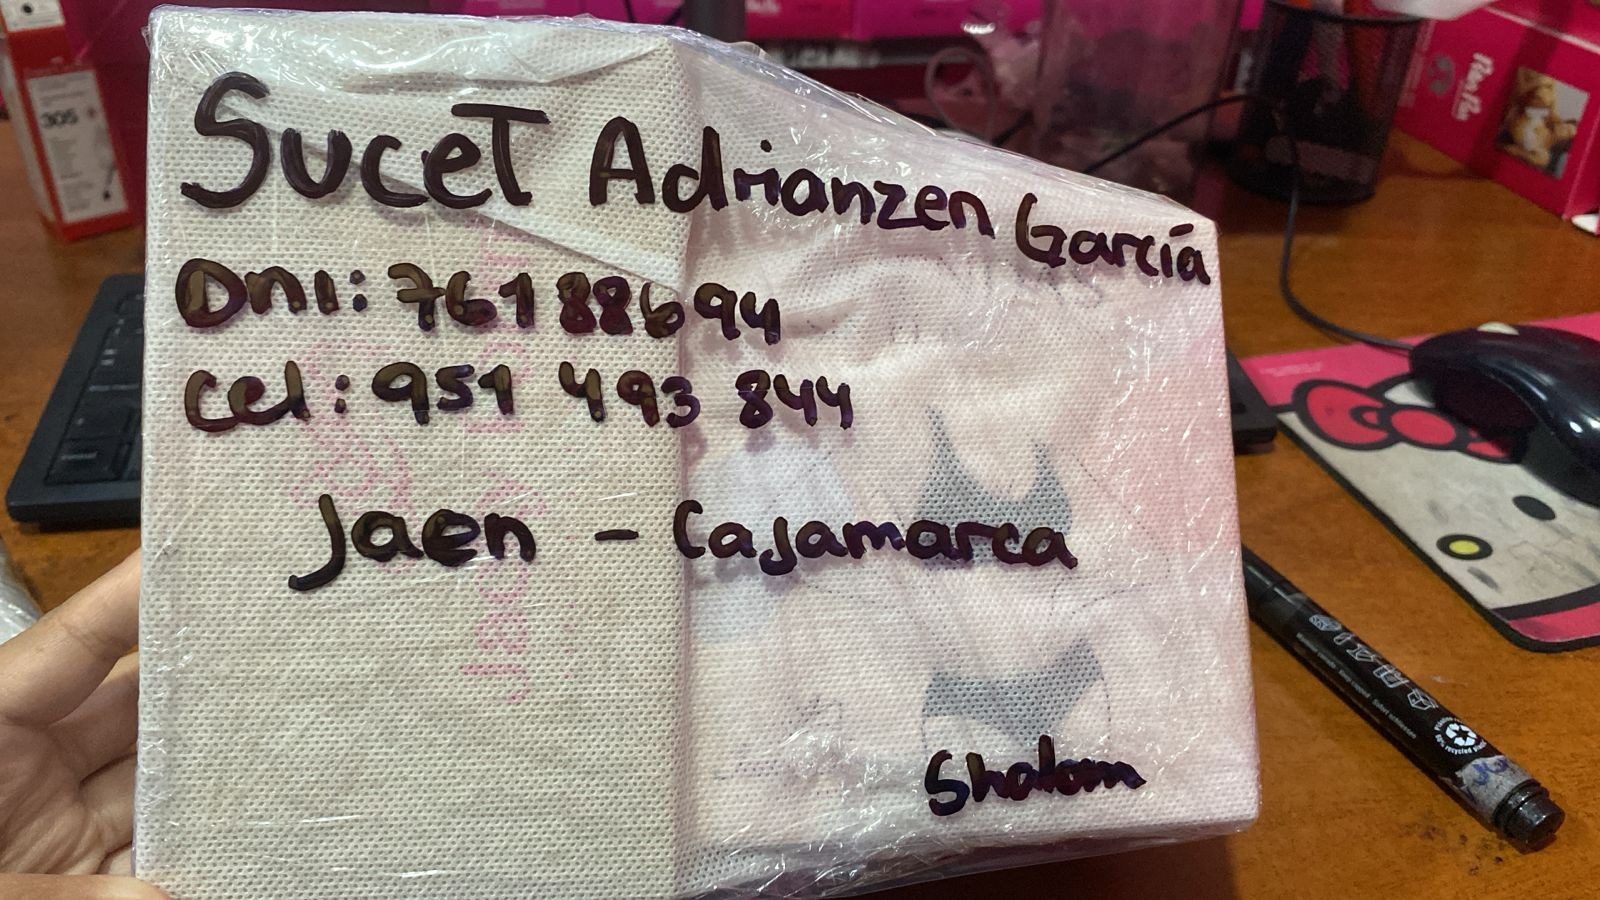 Sucet Adrianzen García
Dni: 76188694
Cel: 951 493 844
Jaen - Cajamarca
Shalom
305